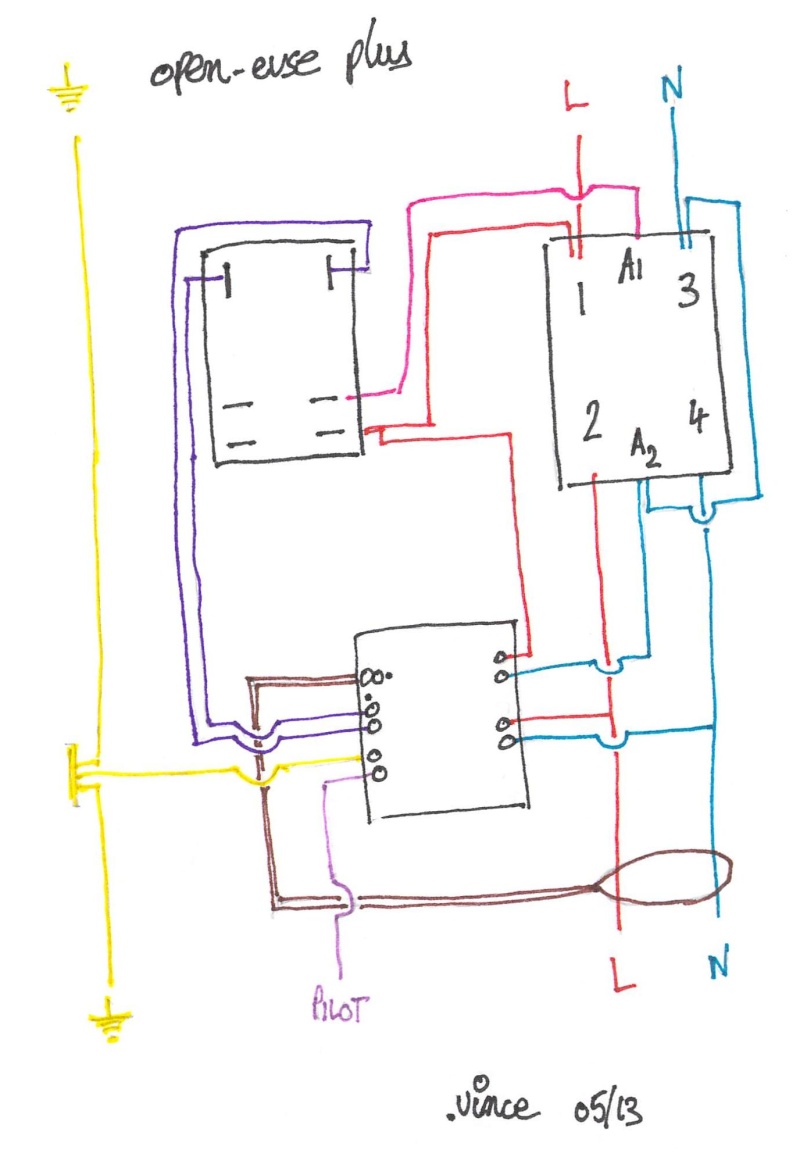 open-evse plus
L N
A1
1 3
2 4
A2
PILOT
L N
.vince 05/13